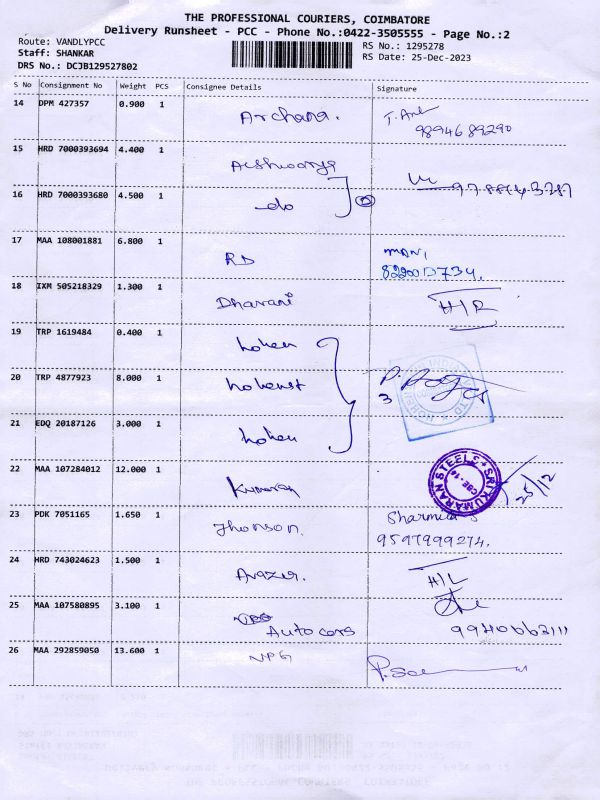 THE PROFESSIONAL COURIERS, COIMBATORE
Delivery Runsheet - PCC - Phone No.:0422-3505555 - Page No.:2
Route: VANDLYPCC
Staff: SHANKAR
DRS No.: DCJB129527802
RS No.: 1295278
RS Date: 25-Dec-2023
S No Consignment No Weight PCS Consignee Details Signature
14 DPM 427357 0.900 1 Archana.
9894689290
15 HRD 7000393694 4.400 1 Aishwarya
16 HRD 7000393680 4.500 1 do
17 MAA 108001881 6.800 1 RD
18 IXM 505218329 1.300 1 Dharani H/R
19 TRP 1619484 0.400 1
20 TRP 4877923 8.000 1
21 EDQ 20187126 3.000 1
22 MAA 107284012 12.000 1 Kumaran SRI KUMARAN STEELS 25/12
23 PDK 7051165 1.650 1 Jhonson. Sharmila S
9597999274.
24 HRD 743024623 1.500 1 H/L
25 MAA 107580895 3.100 1 Autocars
26 MAA 292859050 13.600 1 NPG